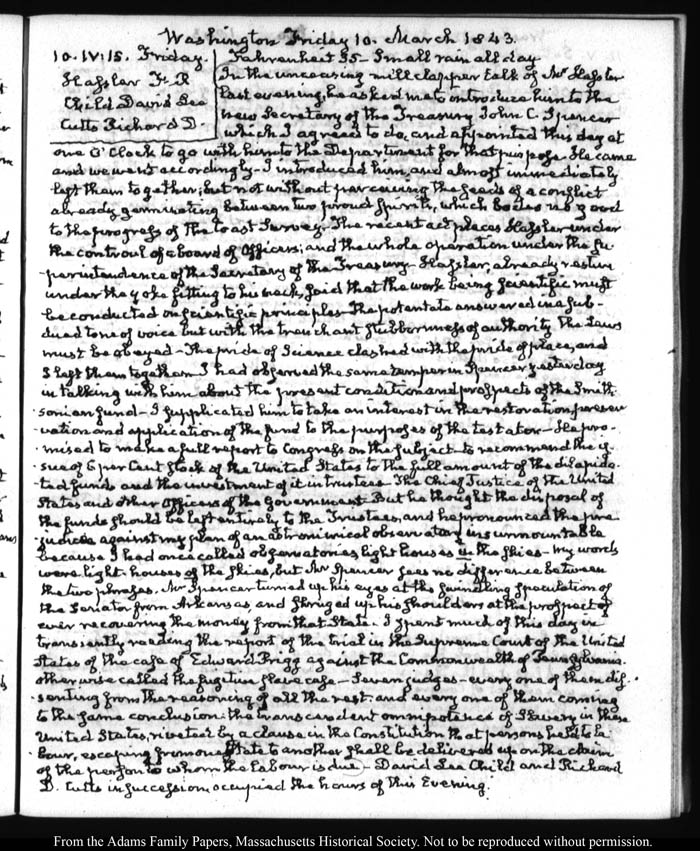 Washington Friday 10. March 1843.
10. IV:15. Friday.
Hassler F. R
Child David Lee
Cutts Richard D.
Fahrenheit 35. Small rain all day
In the unceasing mill clapper talk of Mr Hassler
last evening, he asked me to introduce him to the
new Secretary of the Treasury John C. Spencer
which I agreed to do, and appointed this day at
one O'Clock to go with him to the Department for that purpose. He came
and we went accordingly. I introduced him, and almost immediately
left them together; but not without perceiving the seeds of a conflict
already germinating between two proud Spirits, which bodes no good
to the progress of the Coast Survey. The recent act places Hassler under
the controul of a board of Officers; and the whole operation under the Su-
perintendence of the Secretary of the Treasury. Hassler, already restive
under the yoke fitting to his neck, said that the work being Scientific must
be conducted on Scientific principles. The potentate answered in a sub-
dued tone of voice but with the trenchant stubbornness of authority The Laws
must be obeyed. The pride of Science clashed with the pride of place, and
I left them together. I had observed the same temper in Spencer yesterday
in talking with him about the present condition and prospects of the Smith
sonian fund. I supplicated him to take an interest in the restoration preser
vation and application of the fund to the purposes of the testator. He pro-
mised to make a full report to Congress on the subject. to recommend the is-
sue of 6 per Cent Stock of the United States to the full amount of the dilapida-
ted funds and the investment of it in trustees. The Chief Justice of the United
States and other Officers of the Government. But he thought the disposal of
the funds should be left entirely to the Trustees, and he pronounced the pre-
judices against my plan of an astronomical observatory insurmountable
because I had once called observatories light houses in the skies. My words
were light-houses of the skies, but Mr Spencer sees no difference between
the two phrases. Mr Spencer turned up his eyes at the swindling speculation of
the Senator from Arkansas, and shrugged up his shoulders at the prospect of
ever recovering the money from that State. I spent much of this day in
transiently reading the report of the trial in the Supreme Court of the United
States of the case of Edward Prigg against the Commonwealth of Pennsylvania.
otherwise called the fugitive slave case. Seven judges. every one of them dis-
senting from the reasoning of all the rest. and every one of them coming
to the same conclusion. the transcendent omnipotence of Slavery in these
United States, riveted by a clause in the Constitution that persons held to la-
bour, escaping from one State to another shall be delivered up on the claim
of the person to whom the labour is due. David Lee Child and Richard
D. Cutts in succession occupied the hours of this Evening.
From the Adams Family Papers, Massachusetts Historical Society. Not to be reproduced without permission.